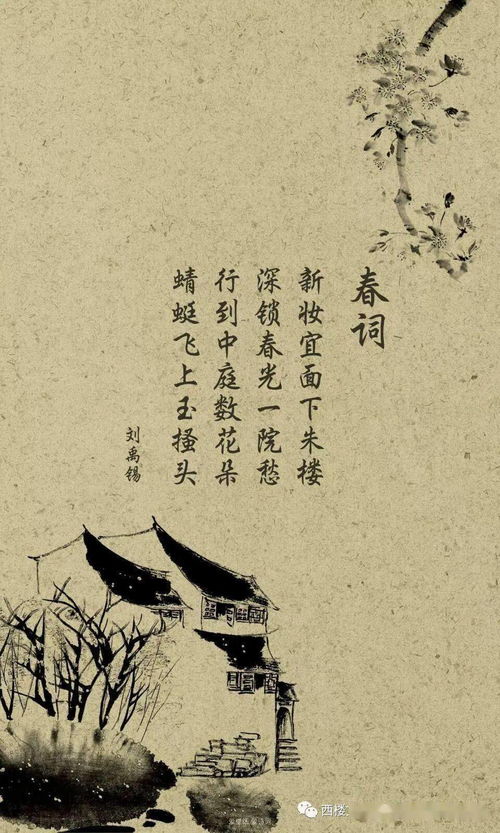 春词
新妆宜面下朱楼
深锁春光一院愁
行到中庭数花朵
蜻蜓飞上玉搔头
刘禹锡
西楼